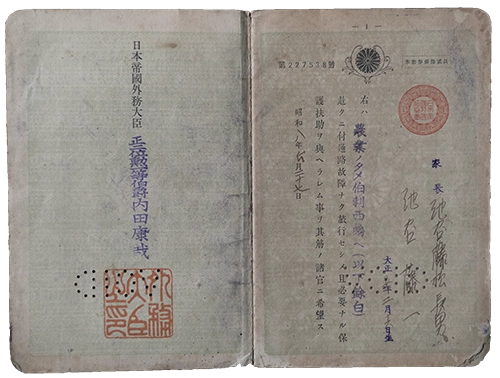 — 1 —
第227538號
家長 池谷藤松長男
池谷 藤一
大正 年二月 日生
右ハ農業ノタメ伯剌西爾ヘ(以下餘白)
赴クニ付通路故障ナク旅行セシメ且必要ナル保
護扶助ヲ與ヘラレム事ヲ其筋ノ諸官ニ希望ス
昭和八年六月二十七日
日本帝國外務大臣 正二位勲一等伯爵内田康哉
外務大臣之印